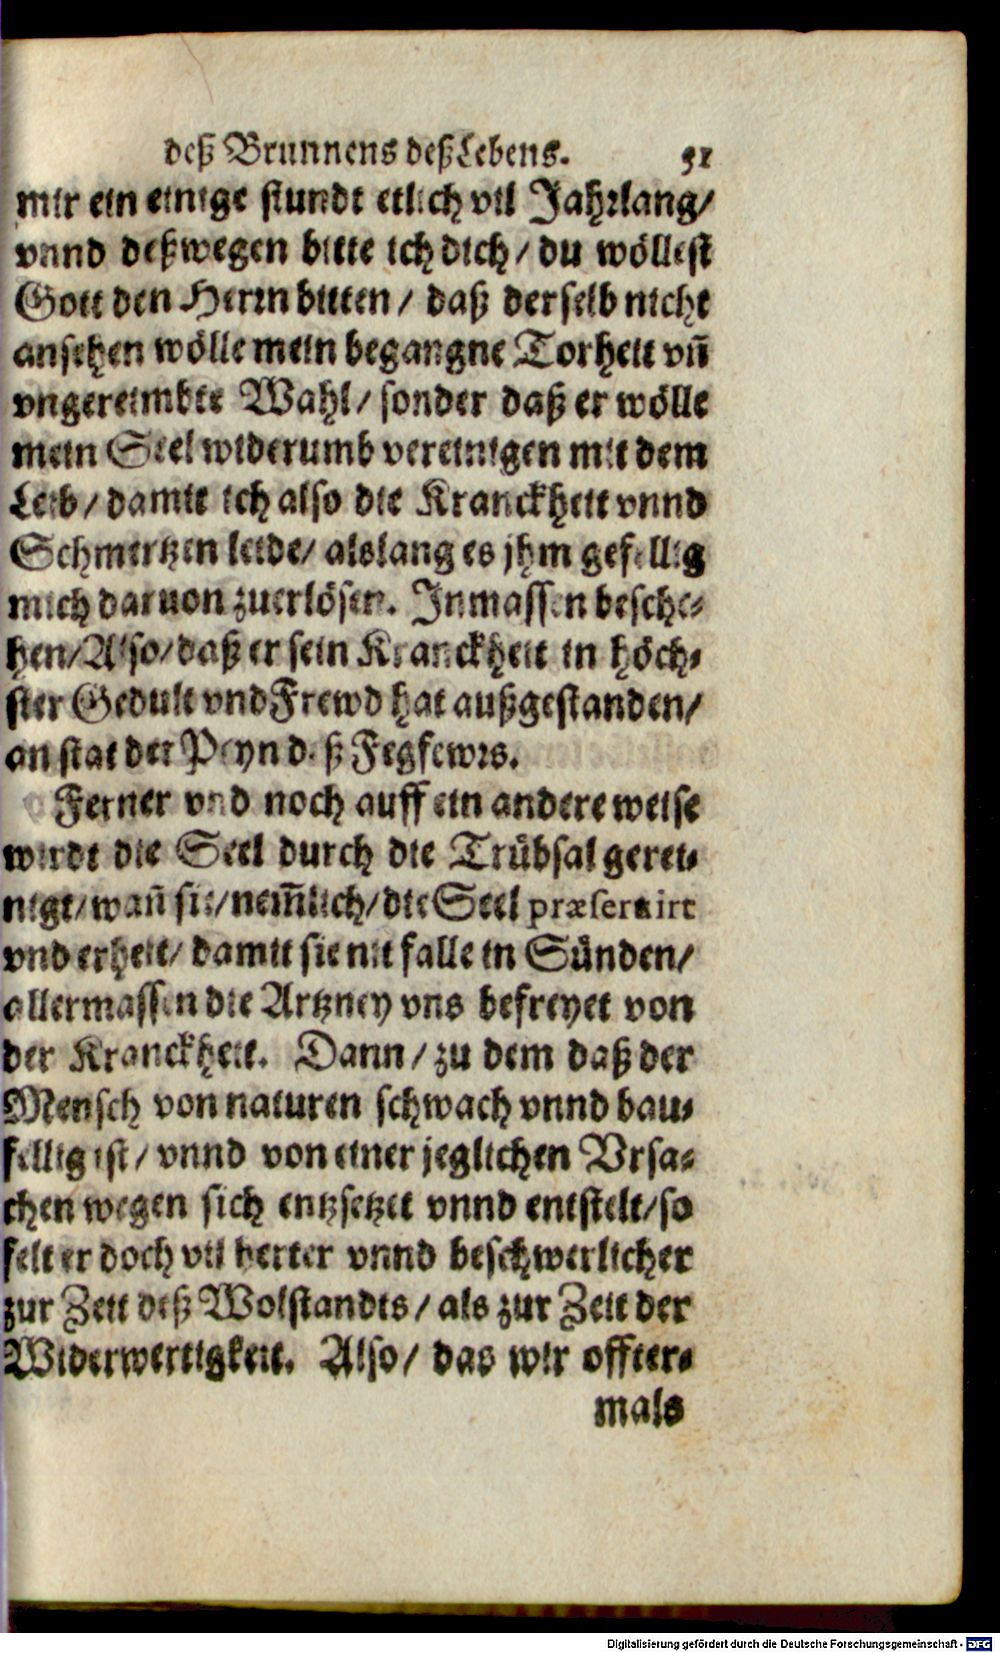 deß Brunnens deß Lebens. 51
mir ein einige stundt etlich vil Jahrlang/
vnnd deßwegen bitte ich dich/ du wöllest
Gott den Herrn bitten/ daß derselb nicht
ansehen wölle mein begangne Torheit vñ
vngereimbte Wahl/ sonder daß er wölle
mein Seel widerumb vereinigen mit dem
Leib/ damit ich also die Kranckheit vnnd
Schmertzen leide/ alslang es jhm gefellig
mich daruon zuerlösen. Inmassen besche-
hen/ Also/ daß er sein Kranckheit in höch-
ster Gedult vnd Frewd hat außgestanden/
an stat der Peyn deß Fegfewrs.
Ferner vnd noch auff ein andere weise
wirdt die Seel durch die Trübsal gerei-
nigt/ wañ sie/ nem̃lich/ die Seel præseruirt
vnd erheit/ damit sie nit falle in Sünden/
allermassen die Artzney vns befreyet von
der Kranckheit. Dann/ zu dem daß der
Mensch von naturen schwach vnnd bau-
fellig ist/ vnnd von einer jeglichen Vrsa-
chen wegen sich entzsetzet vnnd entstelt/ so
felt er doch vil herter vnnd beschwerlicher
zur Zeit deß Wolstandts/ als zur Zeit der
Widerwertigkeit. Also/ das wir offter-
mals
Digitalisierung gefördert durch die Deutsche Forschungsgemeinschaft - DFG